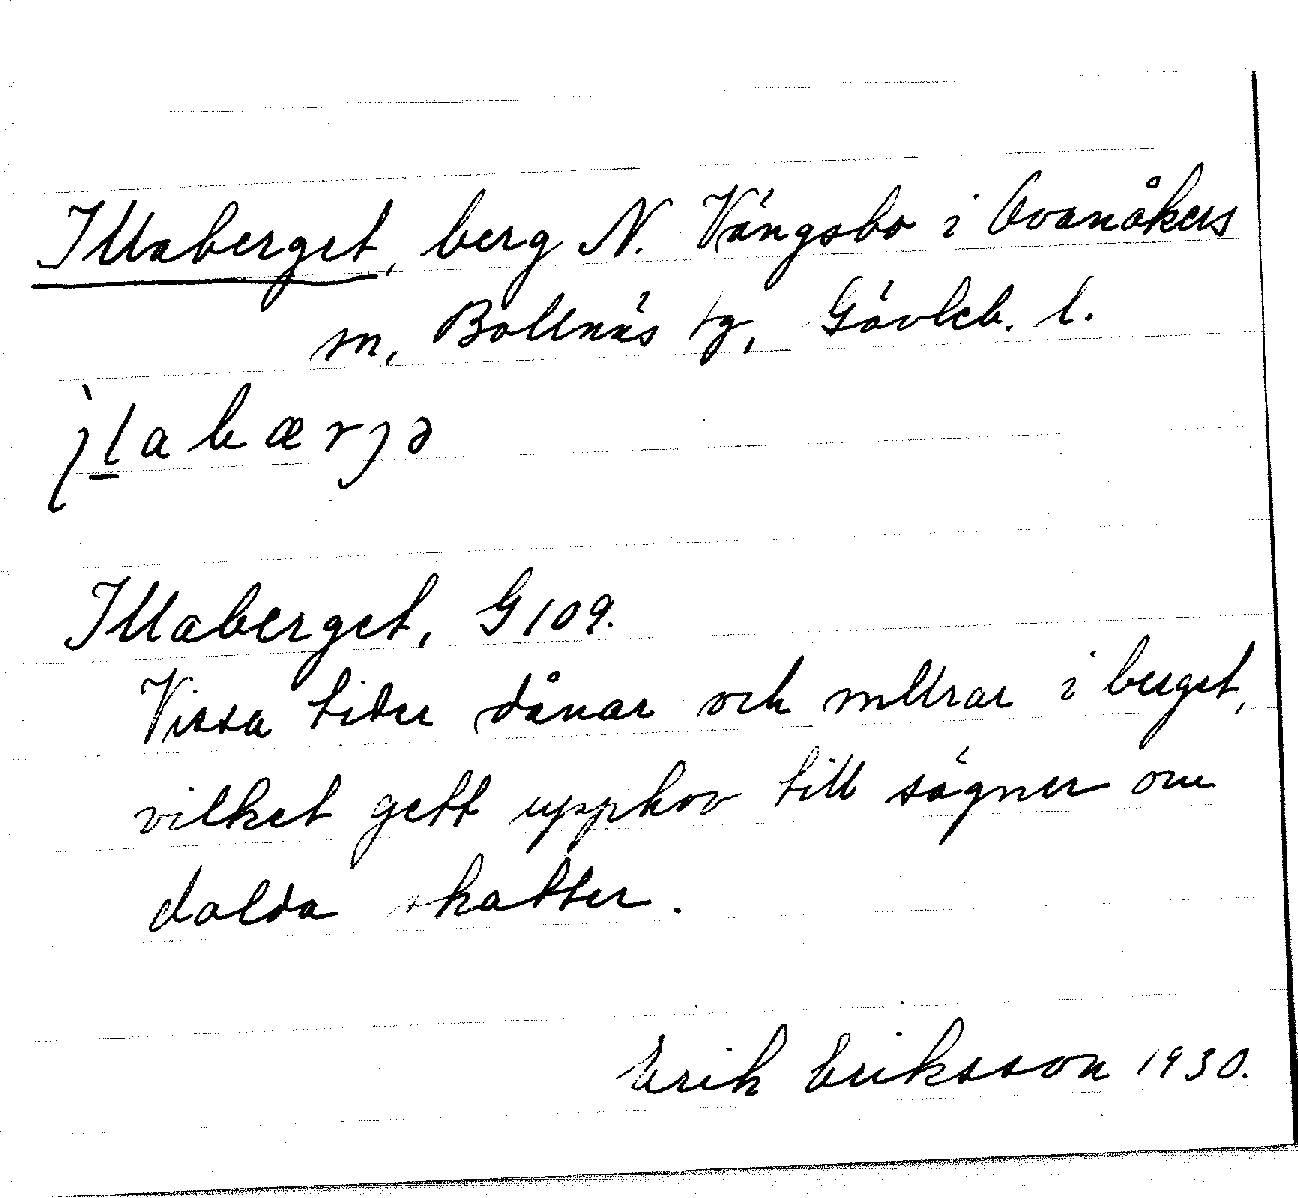 Illaberget, berg N. Vängsbo i Ovanåkers
m, Bollnäs tg, Gävleb. l.
Illaberget, G 109.
Vissa tider dånar och mullrar i berget,
vilket gett upphov till sägner om
dolda skatter.
Erik Eriksson 1930.